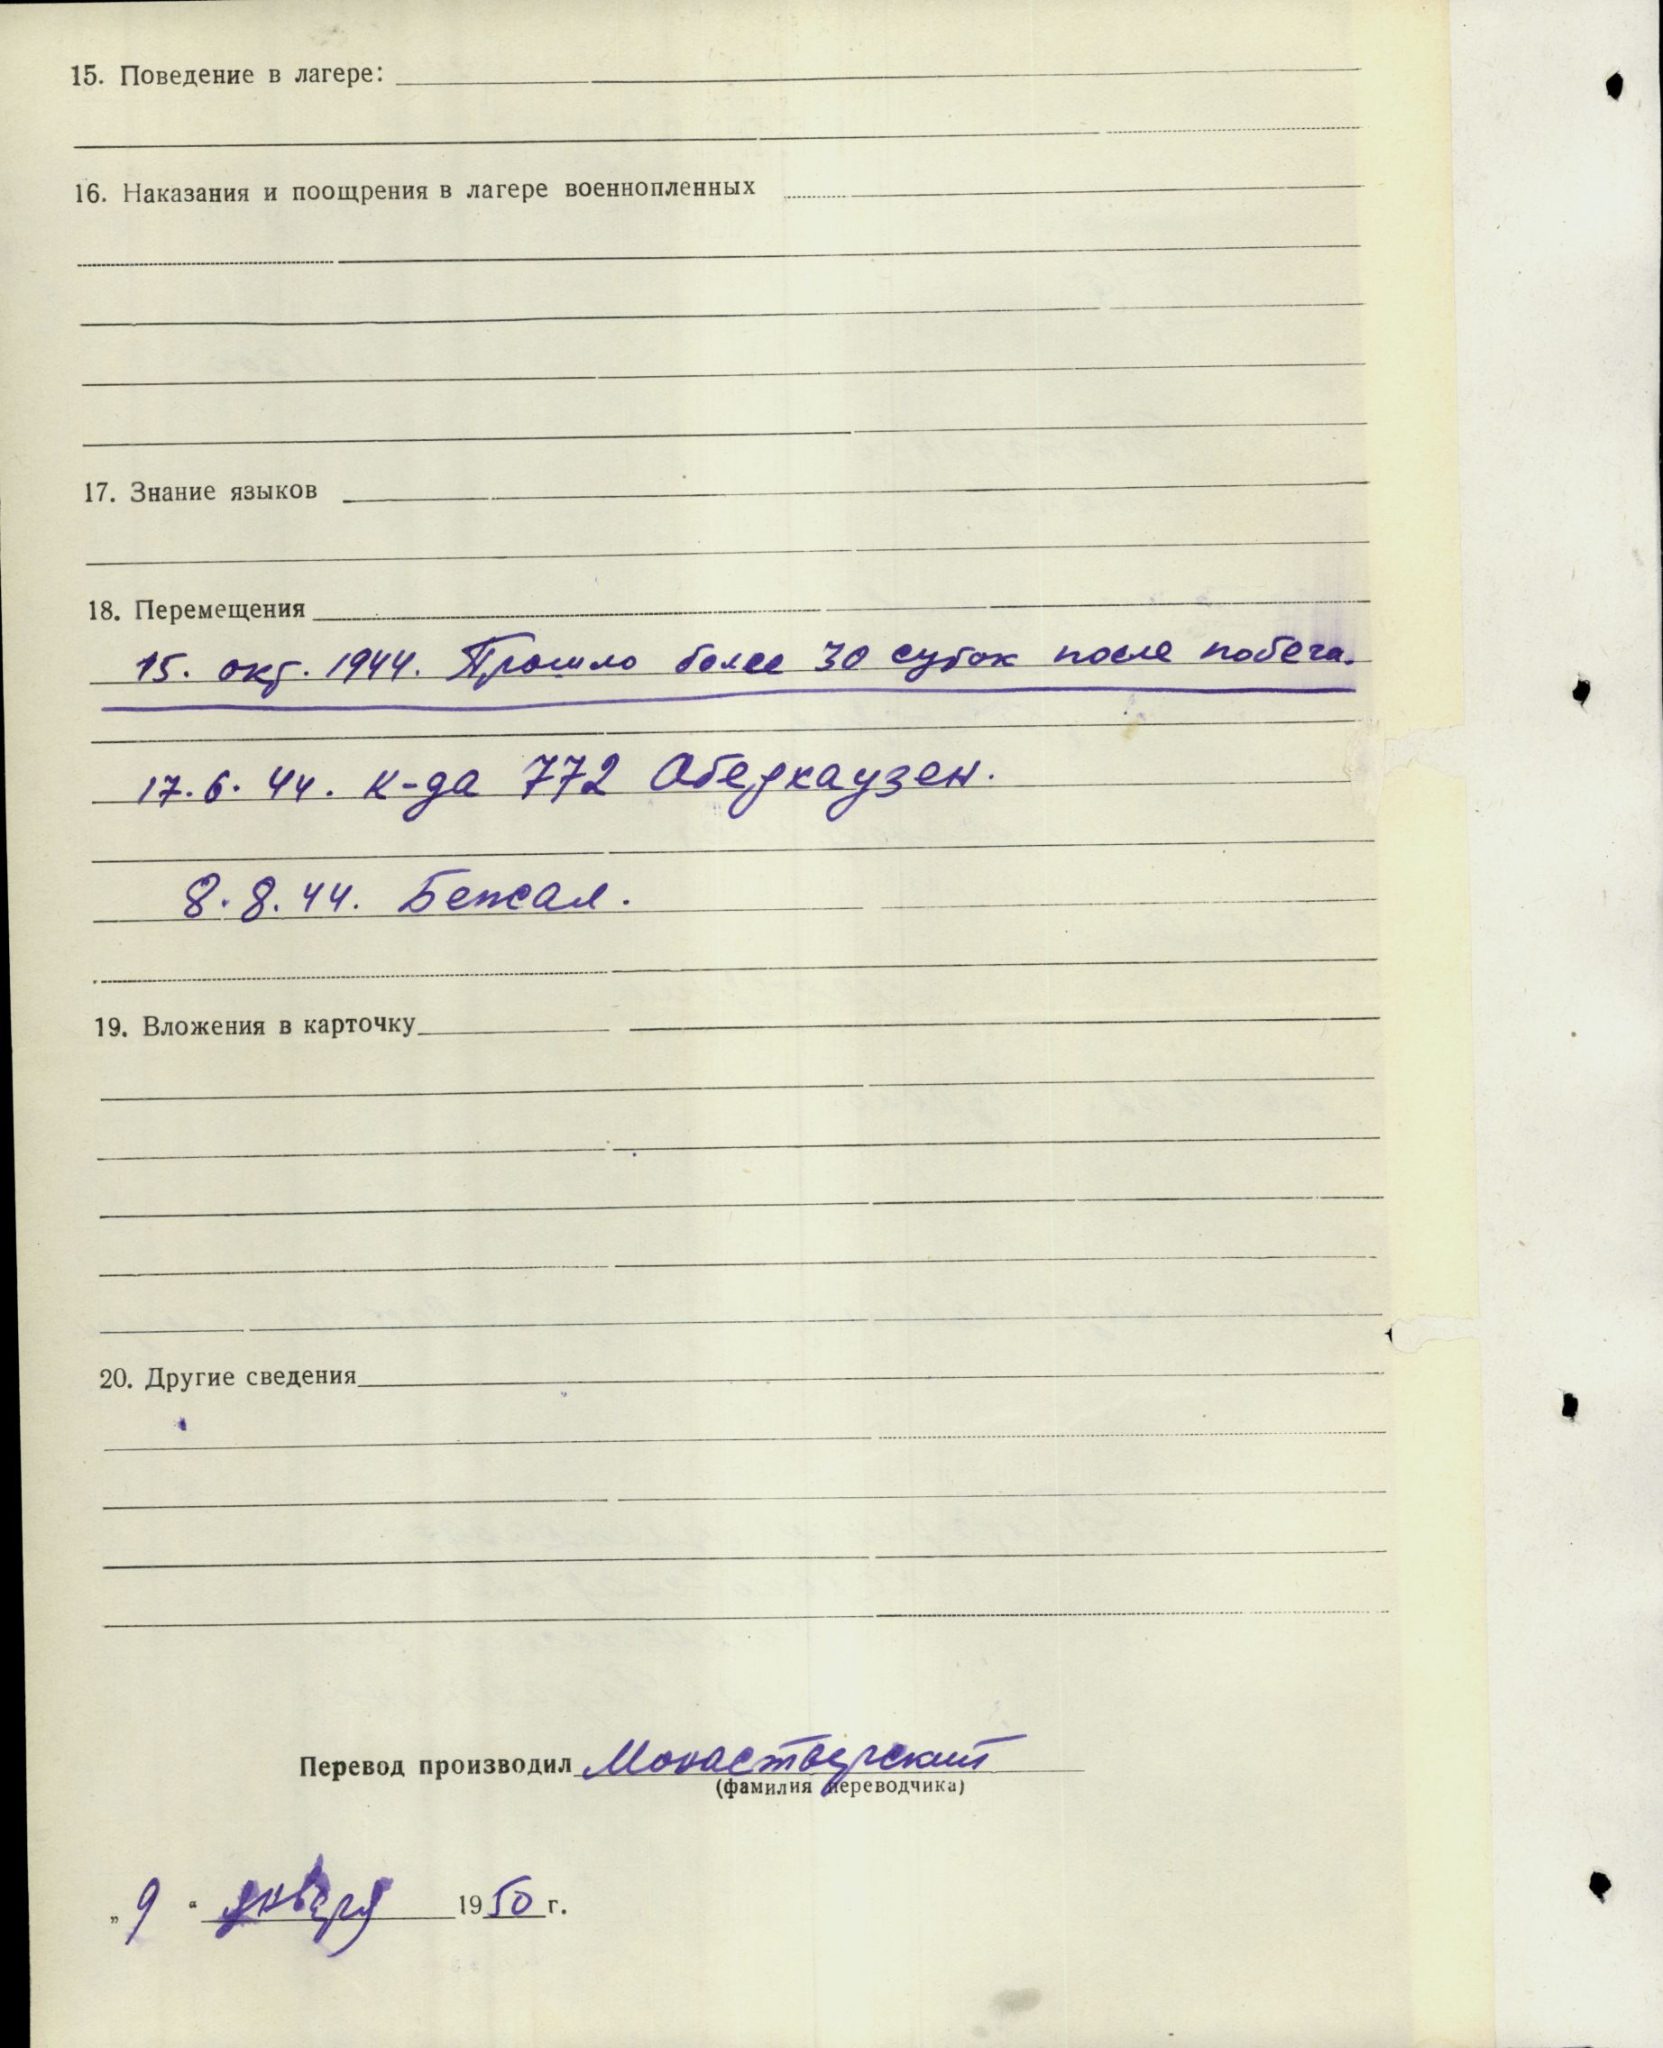 15. Поведение в лагере:
16. Наказания и поощрения в лагере военнопленных
17. Знание языков
18. Перемещения
15. окт. 1944. Прошло более 30 суток после побега.
17.6.44. к-да 772 Оберхаузен.
8.8.44. Бежал.
19. Вложения в карточку
20. Другие сведения
Перевод производил Монастырский
(фамилия переводчика)
„ 9 “ января 1950 г.